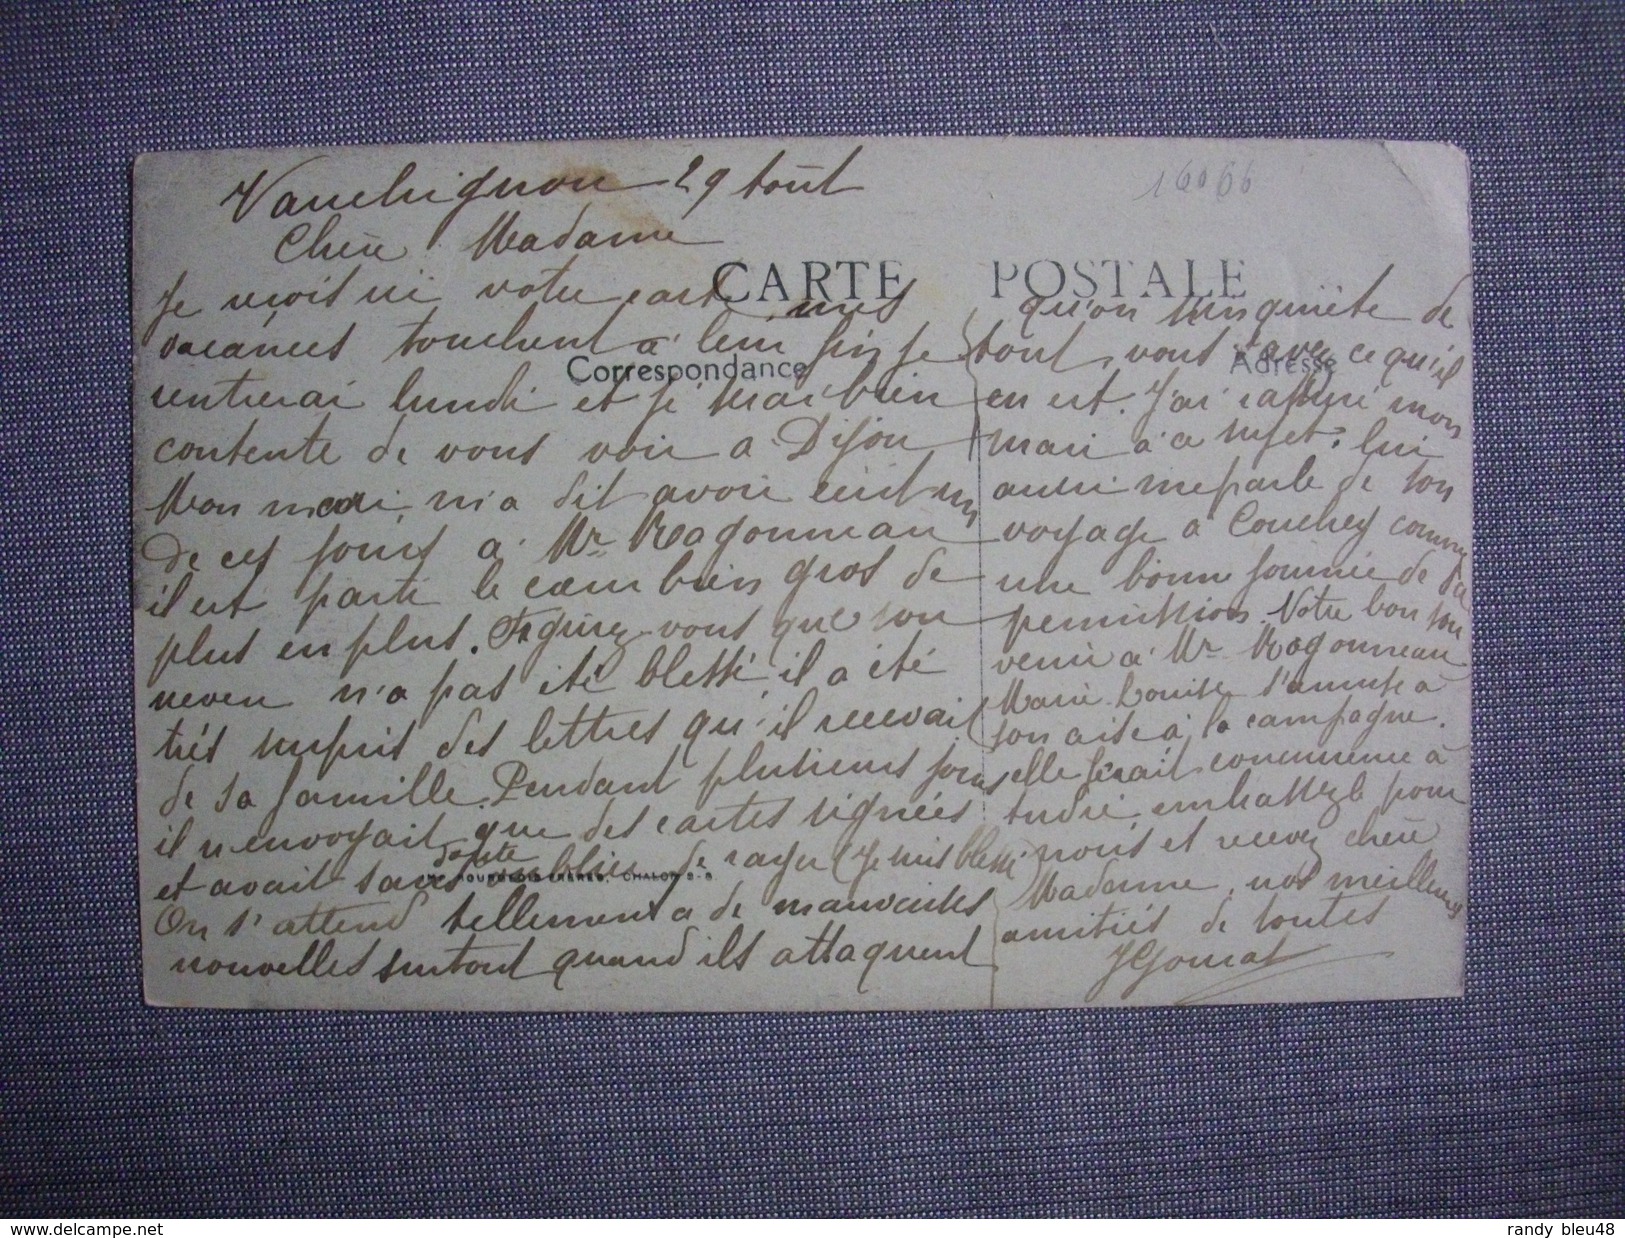 Vauchignon 29 Août
16066
Chère Madame
CARTE POSTALE
Correspondance
Adresse
Je reçois ici votre carte mes
vacances touchent à leur fin je
rentrerai lundi et je serai bien
contente de vous voir à Dijon
Mon mari m'a dit avoir écrit un
de ces jours à Mr Ragonneau
il est parti le cœur bien gros de
plus en plus. Figurez-vous que son
neveu n'a pas été blessé, il a été
très surpris des lettres qu'il recevait
de sa famille. Pendant plusieurs jours
il n'envoyait que des cartes signées
et avait sans doute oublié de rayer (je suis blessé
IMP. BOURGEOIS FRÈRES, CHALON S-S.
On s'attend tellement à de mauvaises
nouvelles surtout quand ils attaquent
qu'on s'inquiète de
tout, vous savez ce qu'il
en est. J'ai rassuré mon
mari à ce sujet. Lui
aussi me parle de son
voyage à Couchey comme
une bonne journée de sa
permission. Votre bon sou
venir à Mr Ragonneau
Marie Louise s'amuse à
son aise à la campagne.
elle ferait concurrence à
embrassez le pour
nous et recevez chère
Madame, nos meilleures
amitiés de toutes
randy_bleu48
www.delcampe.net